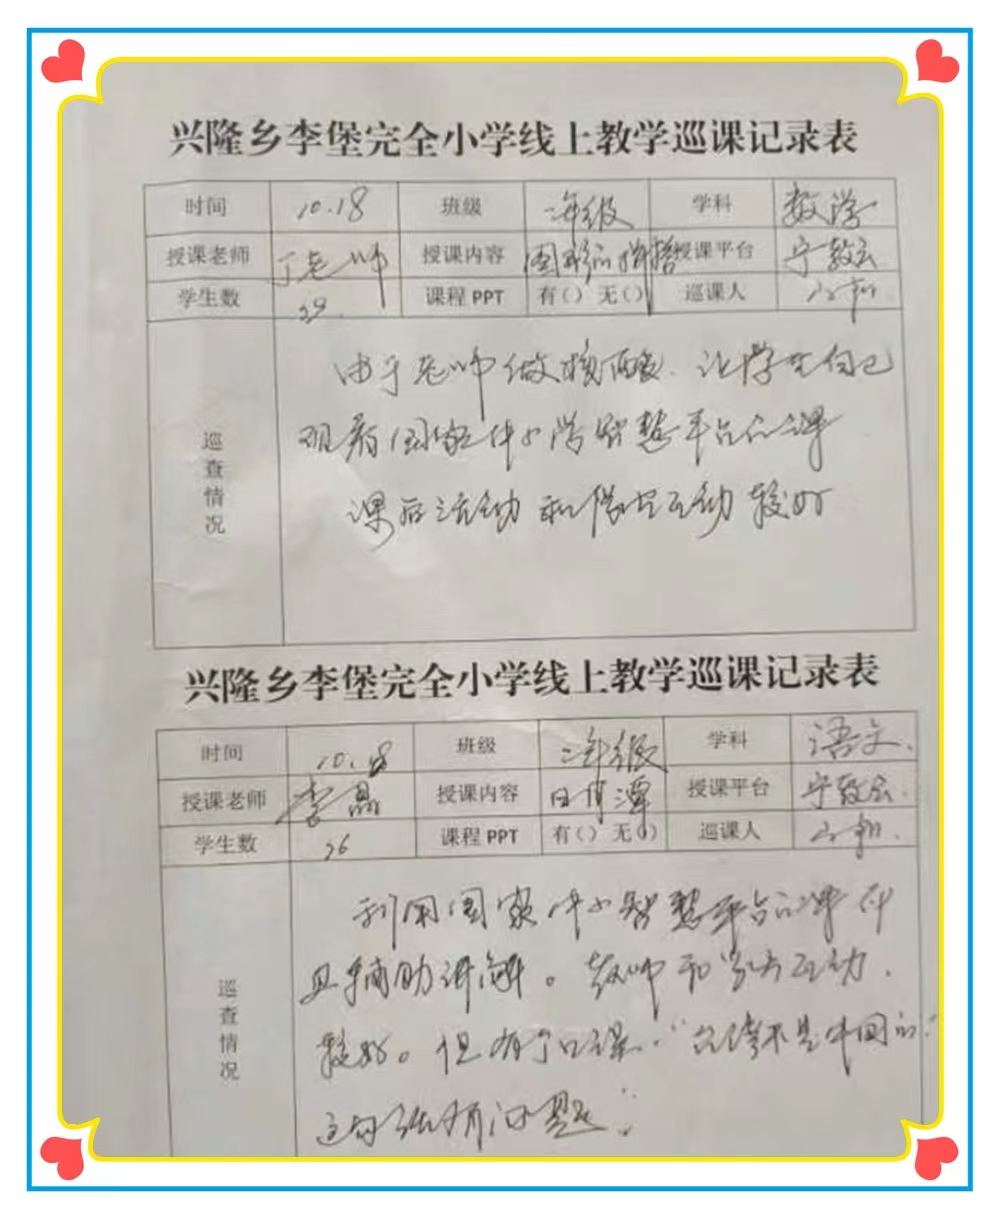 兴隆乡李堡完全小学线上教学巡课记录表
时间 10.18 班级 二年级 学科 数学
授课老师 丁老师 授课内容 图形的拼搭 授课平台 宁教云
学生数 29. 课程PPT 有() 无() 巡课人
巡查情况
由于老师做核酸.让学生自己
观看国家中小学智慧平台的课
课后活动和学生互动较好
兴隆乡李堡完全小学线上教学巡课记录表
时间 10.18 班级 二年级 学科 语文.
授课老师 李晶 授课内容 日月潭 授课平台 宁教云.
学生数 26 课程PPT 有() 无() 巡课人
巡查情况
利用国家中小智慧平台的课件
且辅助讲解。教师和学生互动.
较好。但有个口误."台湾不是中国的"
这句话有问题.